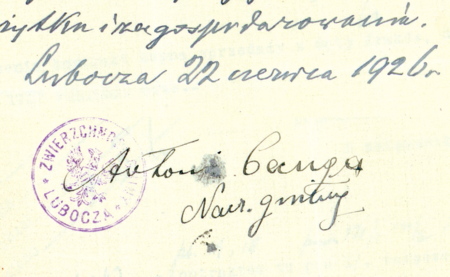 żytku i zagospodarowania.
Lubocza 22 czerwca 1926 r.
ZWIERZCHNO
LUBOCZA
Antoni Canga
Nacz. gminy